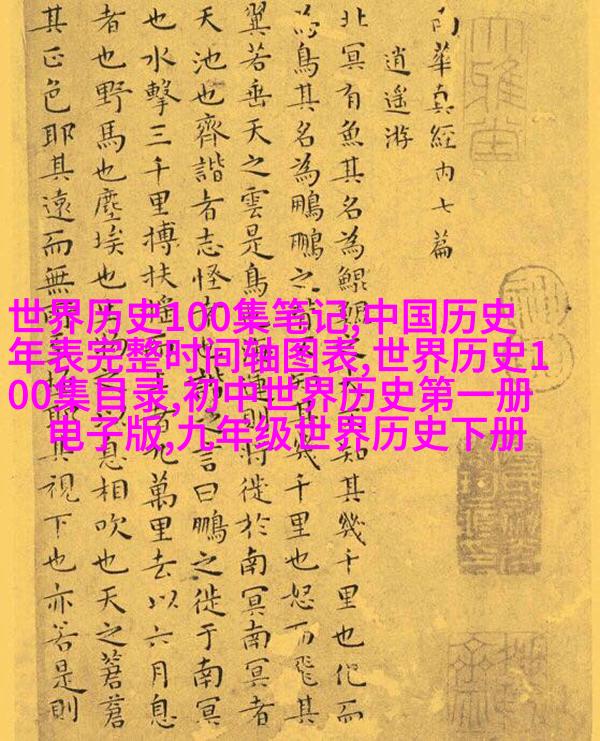 南華真經内七篇
逍遥游
北冥有魚其名為鯤鯤之大知其幾千里也化而
為鳥其名為鵬鵬之背不其幾千里也怒而飛其
翼若垂天之雲是鳥也運則將徙於南冥南冥者
天池也齊諧者志怪者也之言曰鵬之徙于南冥
也水擊三千里摶扶搖而者九萬里去以六月息
者也野馬也塵埃也物之以息相吹也天之蒼蒼
其正色耶其遠而無極耶其視下也亦若是則
世界历史100集笔记,中国历史
年表完整时间轴图表,世界历史1
00集目录,初中世界历史第一册
电子版,九年级世界历史下册